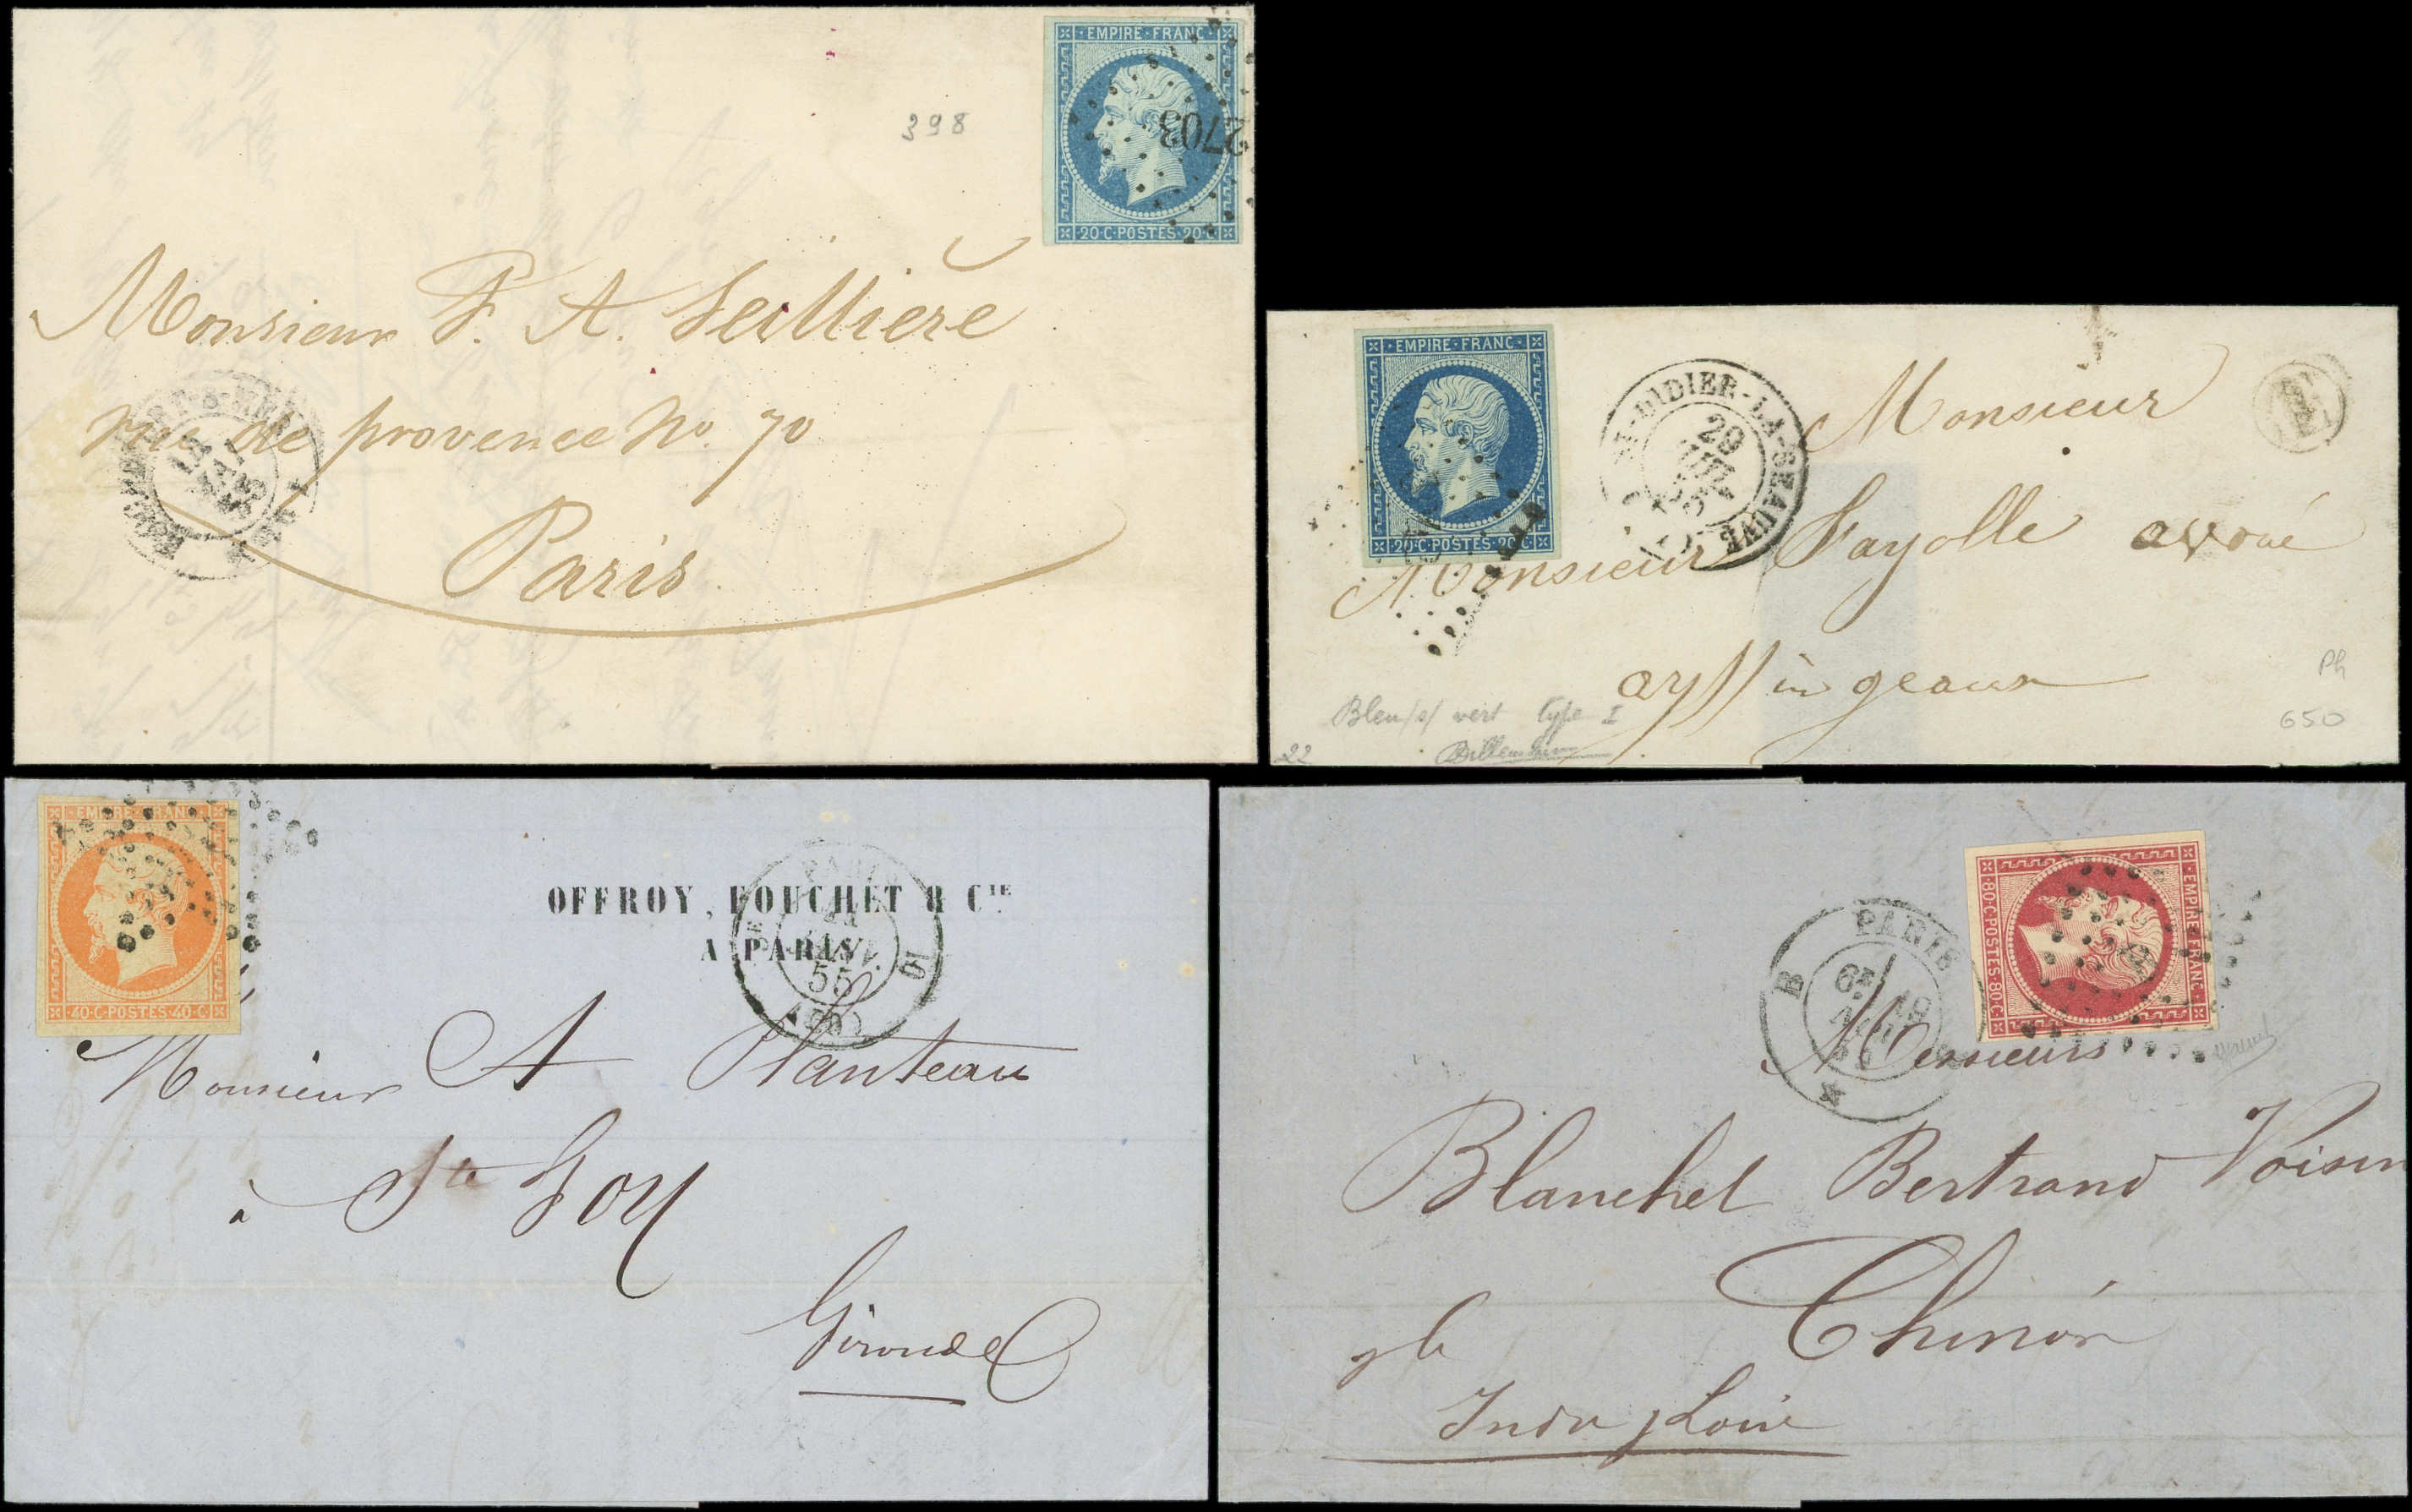 EMPIRE · FRANC
2703
20·C·POSTES·20·C
398
Monsieur F. A. Seillière
rue de provence No. 70
Paris
EMPIRE · FRANC
20·C·POSTES·20·C
ST-DIDIER-LA-SEAUVE
29
Monsieur
Monsieur Fayolle avoué
Bleu /s/ vert type I
22
Ph
650
EMPIRE · FRANC
40·C·POSTES·40·C
OFFROY, BOUCHET & CIE
A PARIS
PARIS
55
(60)
Monsieur A Planteau
à Ste Foy
Gironde
EMPIRE · FRANC
80·C·POSTES·80·C
PARIS
B
6E
19
Messieurs
Blanchet Bertrand Voisin
Chinon
Indre & Loire